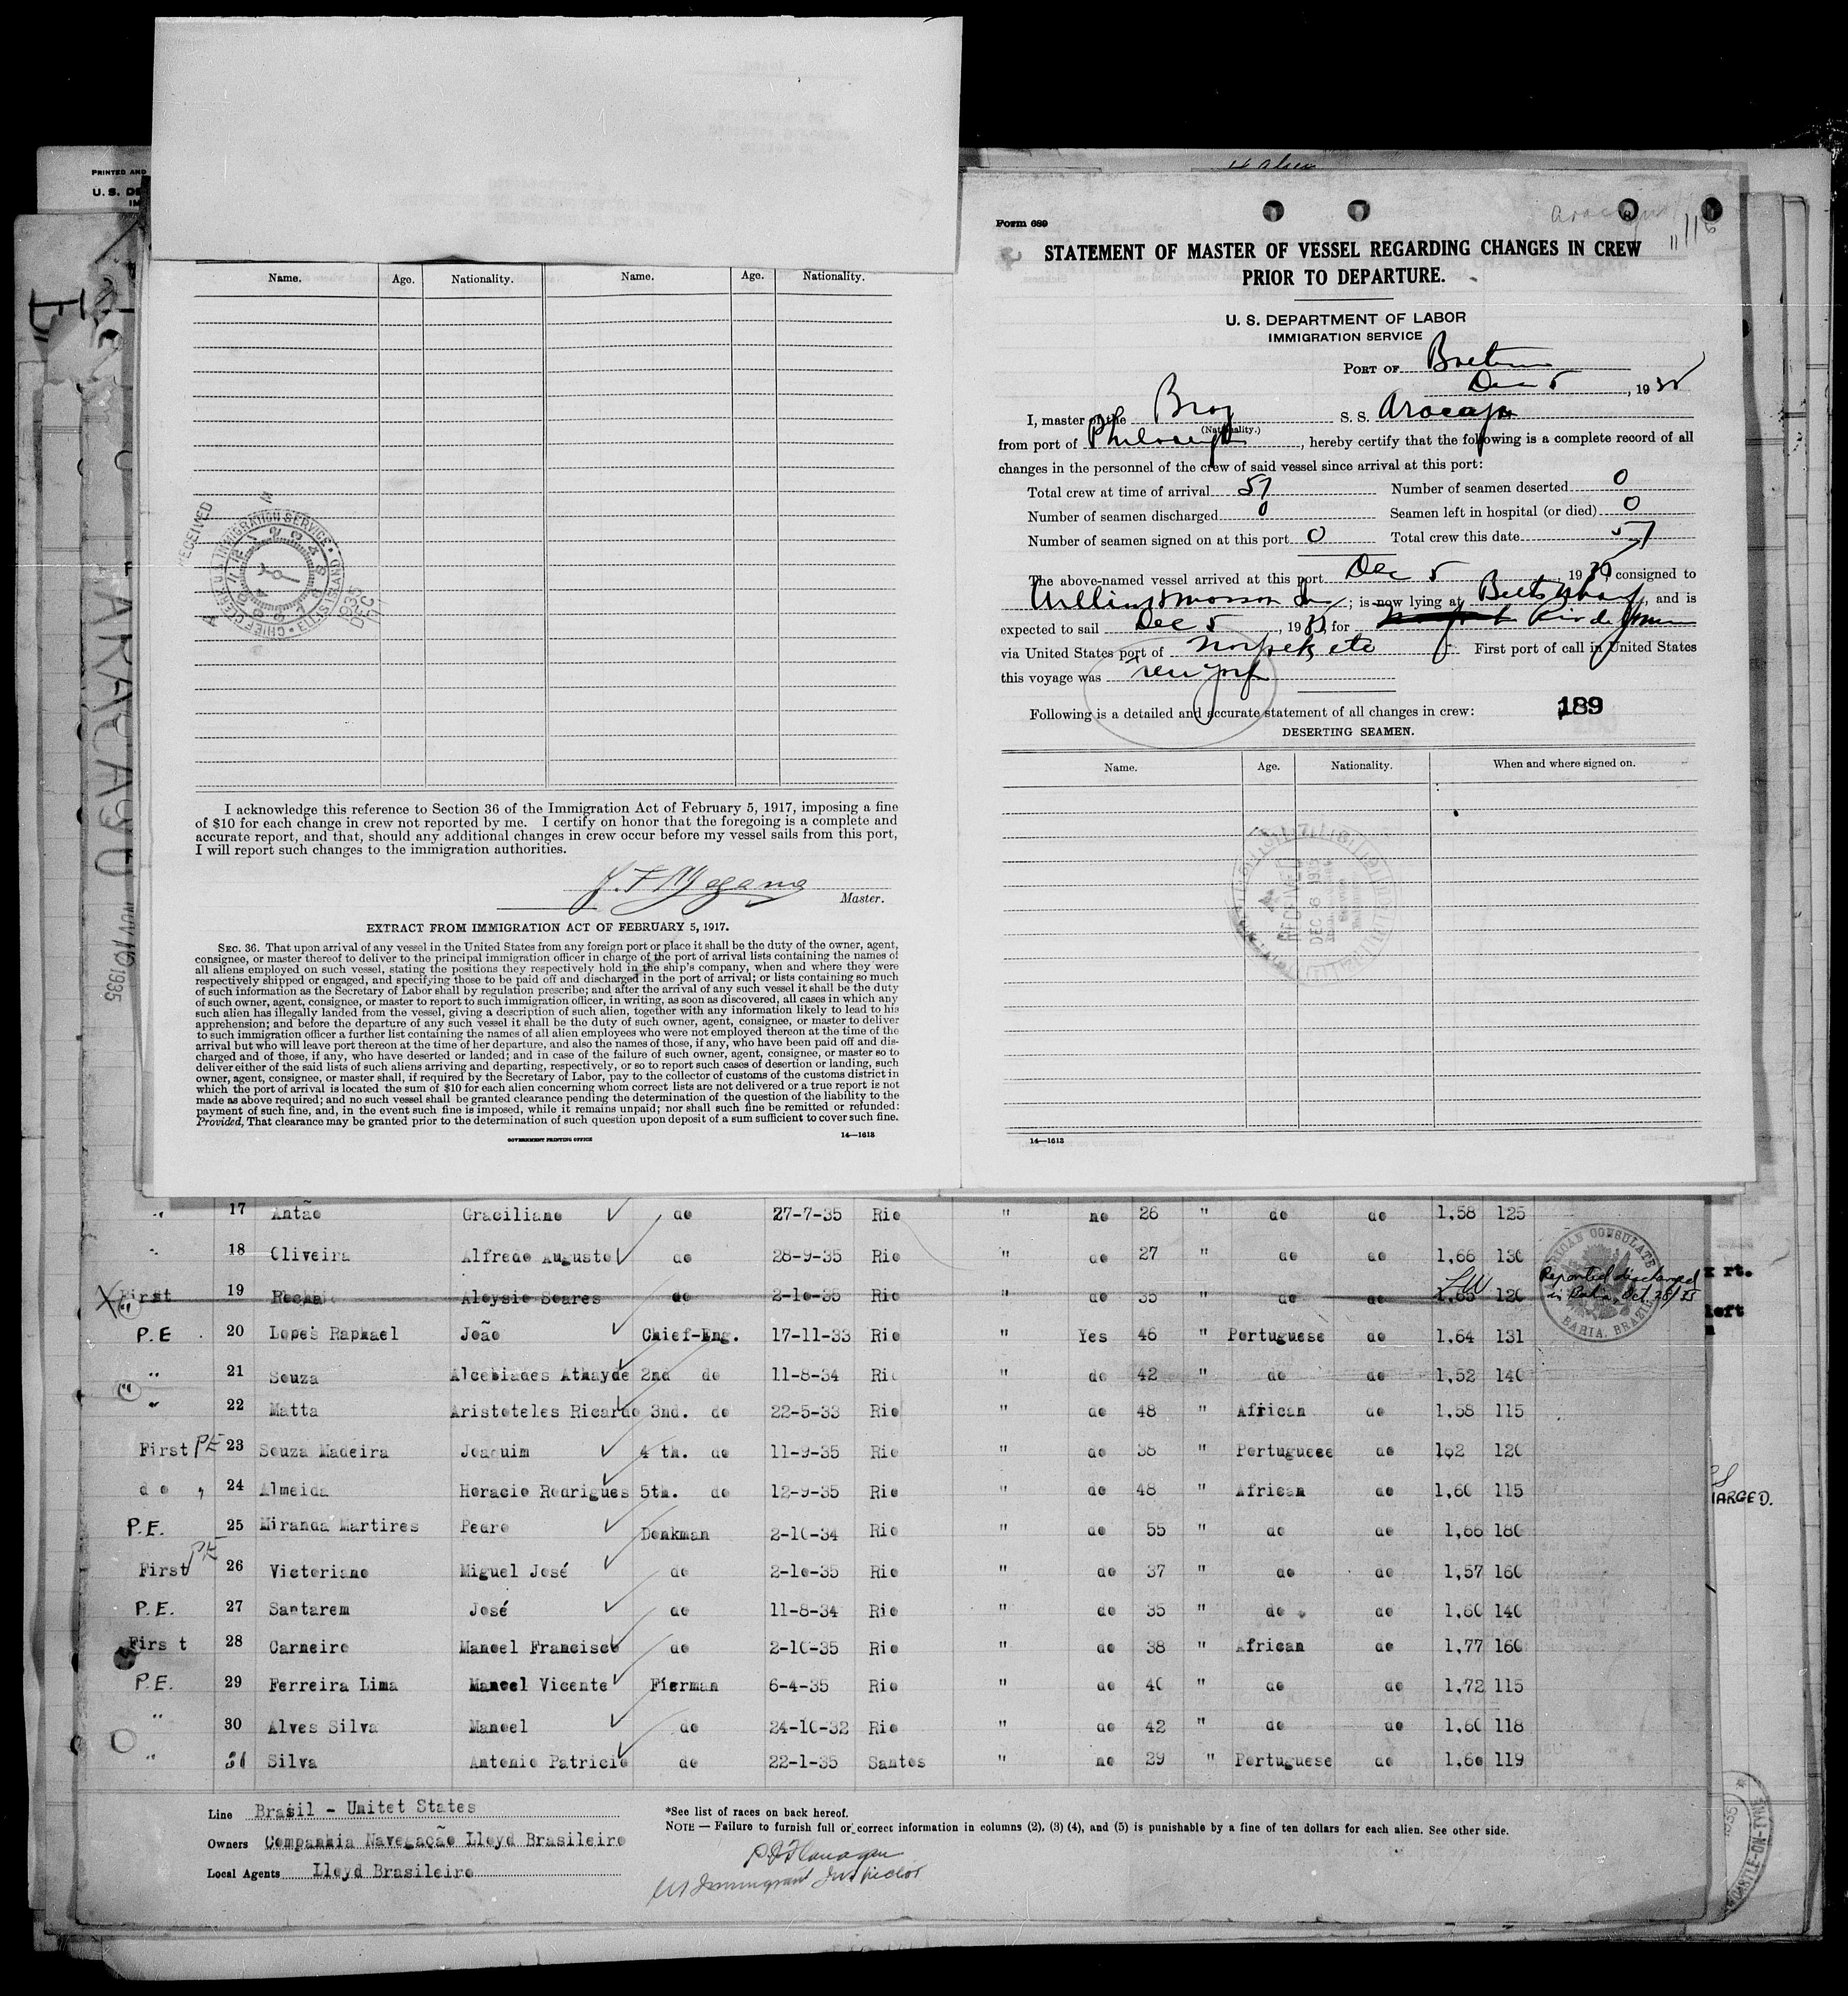 PRINTED AND
U. S. DE
Name. Age. Nationality. Name. Age. Nationality.
RECEIVED
I acknowledge this reference to Section 36 of the Immigration Act of February 5, 1917, imposing a fine
of $10 for each change in crew not reported by me. I certify on honor that the foregoing is a complete and
accurate report, and that, should any additional changes in crew occur before my vessel sails from this port,
I will report such changes to the immigration authorities.
Master.
EXTRACT FROM IMMIGRATION ACT OF FEBRUARY 5, 1917.
SEC. 36. That upon arrival of any vessel in the United States from any foreign port or place it shall be the duty of the owner, agent,
consignee, or master thereof to deliver to the principal immigration officer in charge of the port of arrival lists containing the names of
all aliens employed on such vessel, stating the positions they respectively hold in the ship's company, when and where they were
respectively shipped or engaged, and specifying those to be paid off and discharged in the port of arrival; or lists containing so much
of such information as the Secretary of Labor shall by regulation prescribe; and after the arrival of any such vessel it shall be the duty
of such owner, agent, consignee, or master to report to such immigration officer, in writing, as soon as discovered, all cases in which any
such alien has illegally landed from the vessel, giving a description of such alien, together with any information likely to lead to his
apprehension; and before the departure of any such vessel it shall be the duty of such owner, agent, consignee, or master to deliver
to such immigration officer a further list containing the names of all alien employees who were not employed thereon at the time of the
arrival but who will leave port thereon at the time of her departure, and also the names of those, if any, who have been paid off and dis-
charged and of those, if any, who have deserted or landed; and in case of the failure of such owner, agent, consignee, or master so to
deliver either of the said lists of such aliens arriving and departing, respectively, or so to report such cases of desertion or landing, such
owner, agent, consignee, or master shall, if required by the Secretary of Labor, pay to the collector of customs of the customs district in
which the port of arrival is located the sum of $10 for each alien concerning whom correct lists are not delivered or a true report is not
made as above required; and no such vessel shall be granted clearance pending the determination of the question of the liability to the
payment of such fine, and, in the event such fine is imposed, while it remains unpaid; nor shall such fine be remitted or refunded:
Provided, That clearance may be granted prior to the determination of such question upon deposit of a sum sufficient to cover such fine.
GOVERNMENT PRINTING OFFICE 14—1613
Form 689
STATEMENT OF MASTER OF VESSEL REGARDING CHANGES IN CREW
PRIOR TO DEPARTURE.
U. S. DEPARTMENT OF LABOR
IMMIGRATION SERVICE
PORT OF
Dec 5, 1935
I, master of the Braz S. S. Aracaju
(Nationality.)
from port of, hereby certify that the following is a complete record of all
changes in the personnel of the crew of said vessel since arrival at this port:
Total crew at time of arrival 57 Number of seamen deserted 0
Number of seamen discharged 0 Seamen left in hospital (or died) 0
Number of seamen signed on at this port 0 Total crew this date 57
The above-named vessel arrived at this port Dec 5, 1935, consigned to
; is now lying at, and is
expected to sail Dec 5, 1935, for Rio de
via United States port of Norfolk, etc First port of call in United States
this voyage was New York
Following is a detailed and accurate statement of all changes in crew: 189
DESERTING SEAMEN.
Name. Age. Nationality. When and where signed on.
RECEIVED
DEC 6 1935
14—1613
" 17 Antão Graciliano do 27-7-35 Rio " no 26 " do do 1,58 125
" 18 Oliveira Alfredo Augusto do 28-9-35 Rio " do 27 " do do 1,66 130
First 19 Rocha Aloysio Soares do 2-10-35 Rio " do 35 " do do 1,65 120 Reported discharged
in Bahia, Oct. 28/35
AMERICAN CONSULATE BAHIA, BRAZIL
P.E. 20 Lopes Raphael João Chief-Eng. 17-11-33 Rio " Yes 46 " Portuguese do 1.64 131
" 21 Souza Alcebiades Athayde 2nd do 11-8-34 Rio " do 42 " do do 1,52 140
" 22 Matta Aristoteles Ricardo 3nd. do 22-5-33 Rio " do 48 " African do 1.58 115
First PE 23 Souza Madeira Joaquim 4 th. do 11-9-35 Rio " do 38 " Portuguese do 162 120
do " 24 Almeida Horacio Rodrigues 5th. do 12-9-35 Rio " do 48 " African do 1,60 115
P.E. 25 Miranda Martires Pedro Donkman 2-10-34 Rio " do 55 " do do 1,66 180
First PE 26 Victoriano Miguel José do 2-10-35 Rio " do 37 " do do 1,57 160
P.E. 27 Santarem José do 11-8-34 Rio " do 35 " do. do 1,60 140
First 28 Carneiro Manoel Francisco do 2-10-35 Rio " do 38 " African do 1,77 160
P.E. 29 Ferreira Lima Manoel Vicente Fierman 6-4-35 Rio " do 40 " do do 1,72 115
" 30 Alves Silva Manoel do 24-10-32 Rio " do 42 " do do 1,60 118
" 31 Silva Antonio Patricio do 22-1-35 Santos " no 29 " Portuguese do 1,60 119
Line Brasil - Unitet States
Owners Companhia Navegação Lloyd Brasileiro
Local Agents Lloyd Brasileiro
*See list of races on back hereof.
NOTE — Failure to furnish full or correct information in columns (2), (3) (4), and (5) is punishable by a fine of ten dollars for each alien. See other side.
Immigrant Inspector